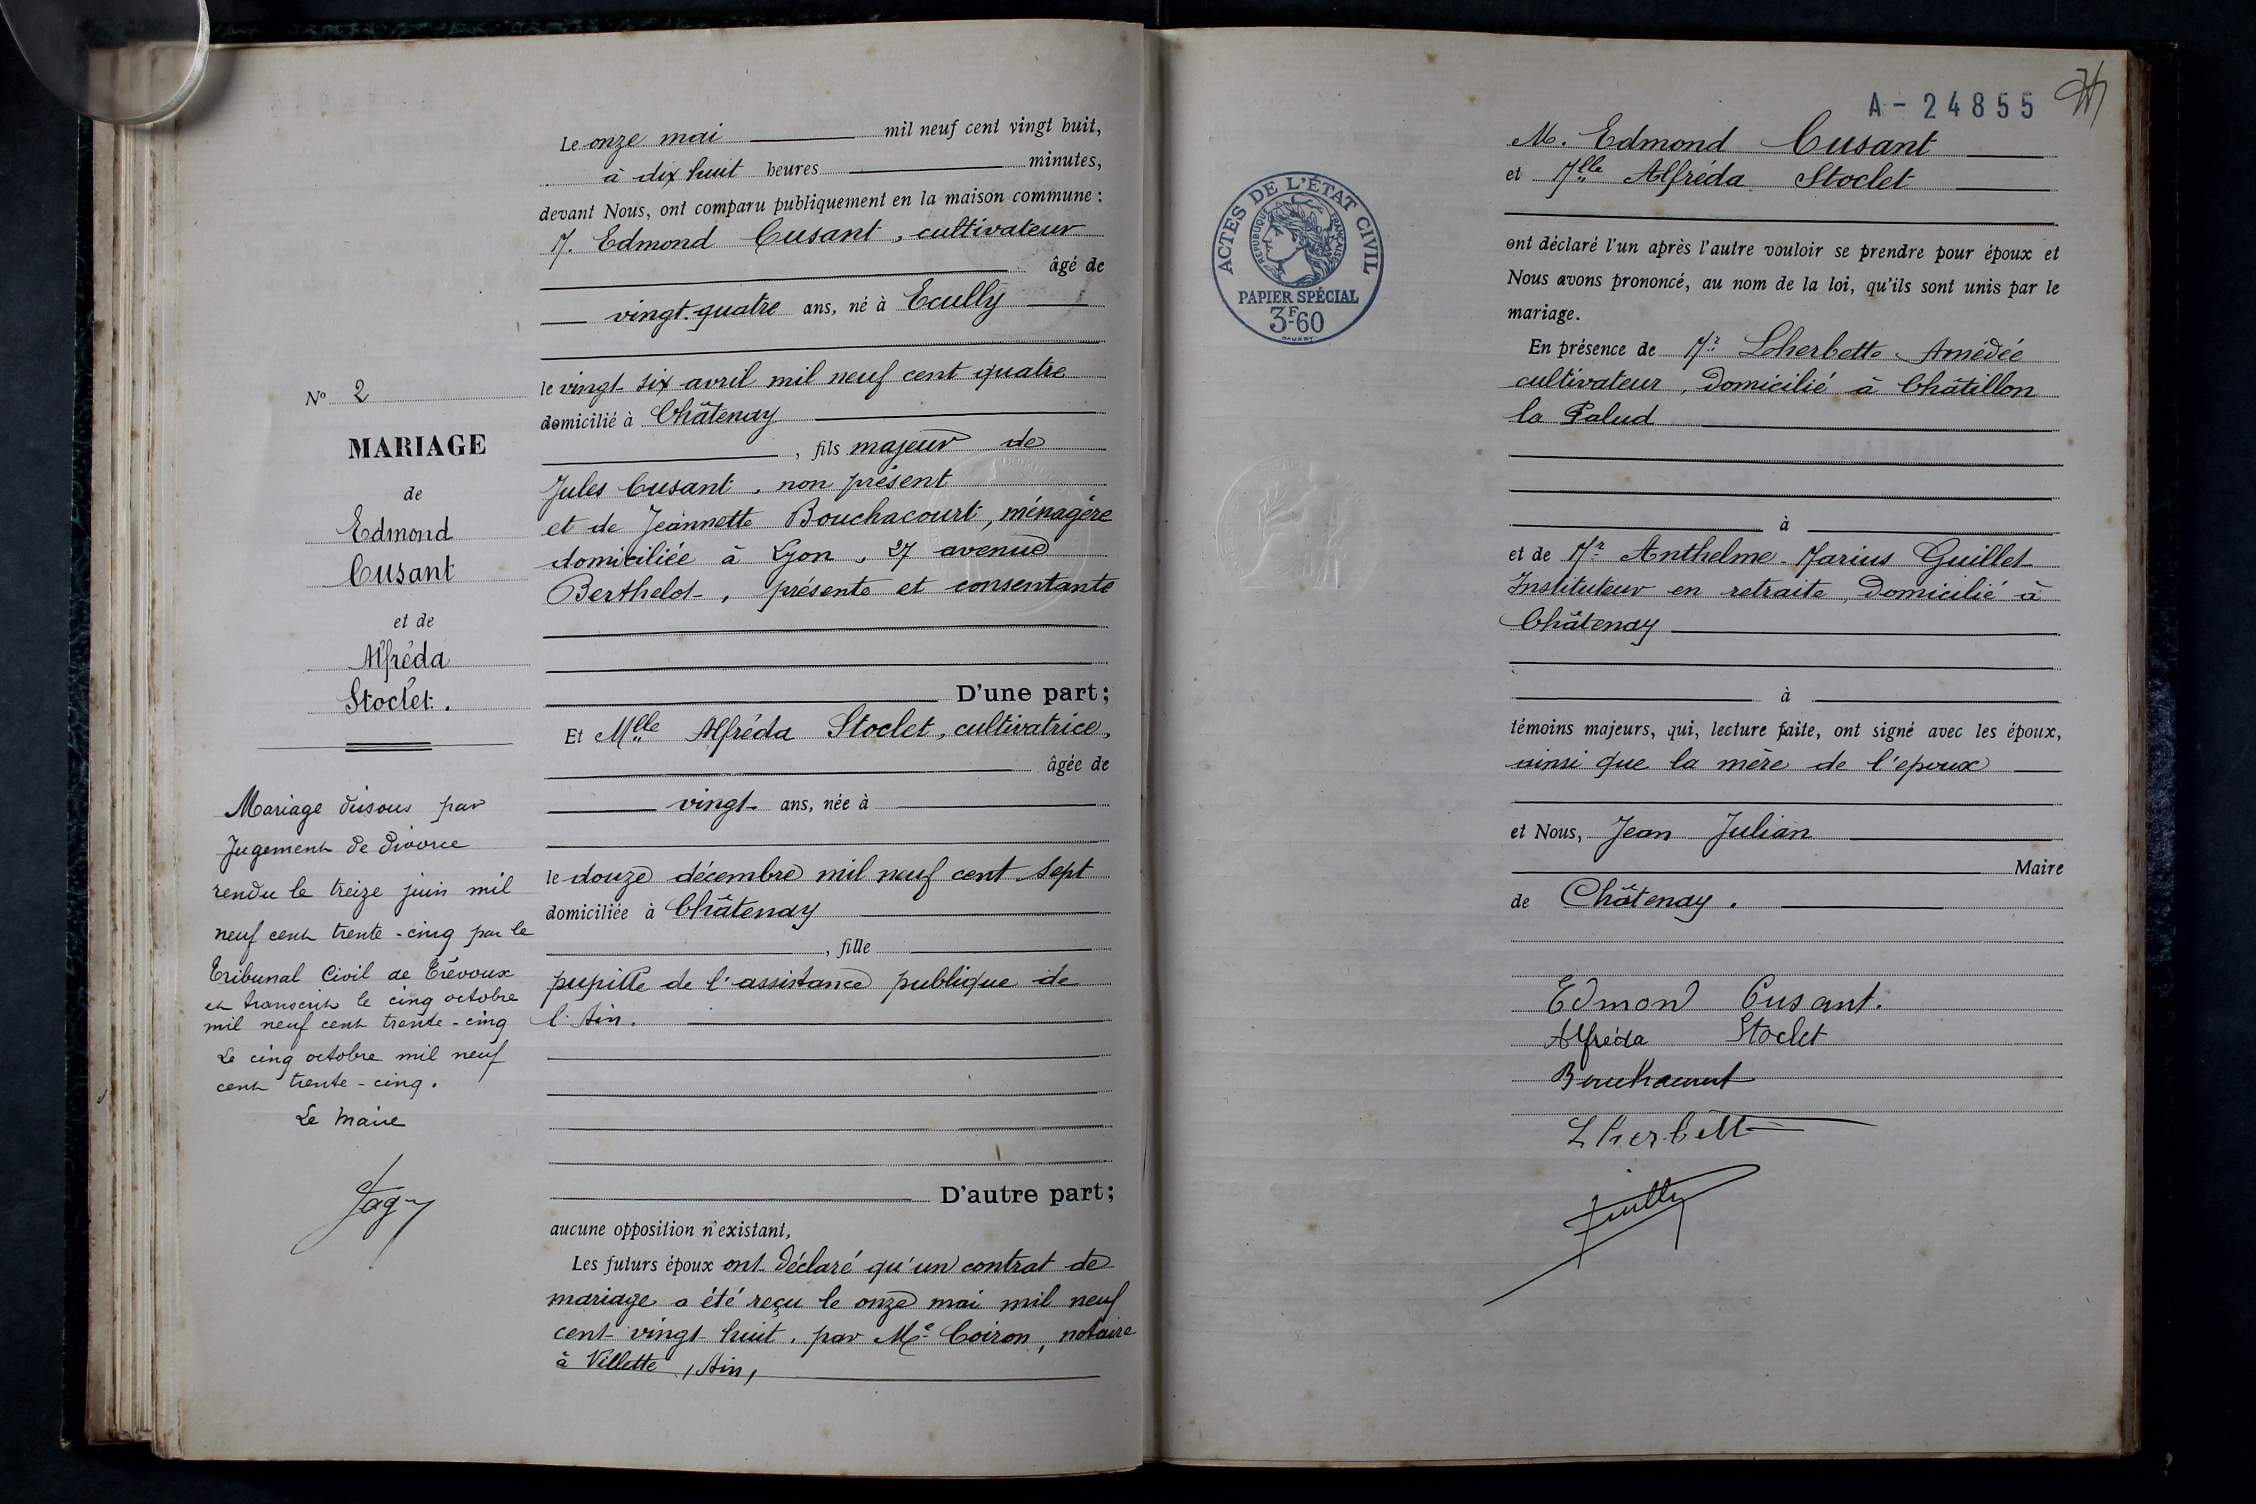 N° 2
MARIAGE
de
Edmond
Cusant
et de
Alfréda
Stoclet.
Mariage dissous par
Jugement de divorce
rendu le treize juin mil
neuf cent trente-cinq par le
Tribunal Civil de Trévoux
et transcrit le cinq octobre
mil neuf cent trente-cinq
Le cinq octobre mil neuf
cent trente-cinq.
Le Maire
Le onze mai mil neuf cent vingt huit,
à dix huit heures minutes,
devant Nous, ont comparu publiquement en la maison commune :
M. Edmond Cusant, cultivateur
âgé de
vingt-quatre ans, né à Ecully
le vingt-six avril mil neuf cent quatre
domicilié à Châtenay
, fils majeur de
Jules Cusant, non présent
et de Jeannette Bouchacourt, ménagère
domiciliée à Lyon, 27 avenue
Berthelot, présente et consentante
D'une part;
Et Mlle Alfréda Stoclet, cultivatrice,
âgée de
vingt ans, née à
le douze décembre mil neuf cent sept
domiciliée à Châtenay
, fille
pupille de l'assistance publique de
l'Ain.
D'autre part;
aucune opposition n'existant,
Les futurs époux ont déclaré qu'un contrat de
mariage a été reçu le onze mai mil neuf
cent vingt huit, par Me Coiron, notaire
à Villette, Ain,
A - 24855
ACTES DE L'ÉTAT CIVIL
RÉPUBLIQUE FRANÇAISE
PAPIER SPÉCIAL
3F60
M. Edmond Cusant
et Mlle Alfréda Stoclet
ont déclaré l'un après l'autre vouloir se prendre pour époux et
Nous avons prononcé, au nom de la loi, qu'ils sont unis par le
mariage.
En présence de Mr Lherbette Amédée
cultivateur, domicilié à Châtillon
la Palud
à
et de Mr Anthelme-Marius Guillet
Instituteur en retraite, domicilié à
Châtenay
à
témoins majeurs, qui, lecture faite, ont signé avec les époux,
ainsi que la mère de l'epoux
et Nous, Jean Julian
Maire
de Châtenay.
Edmond Cusant.
Alfréda Stoclet
Bouchacourt
Lherbette